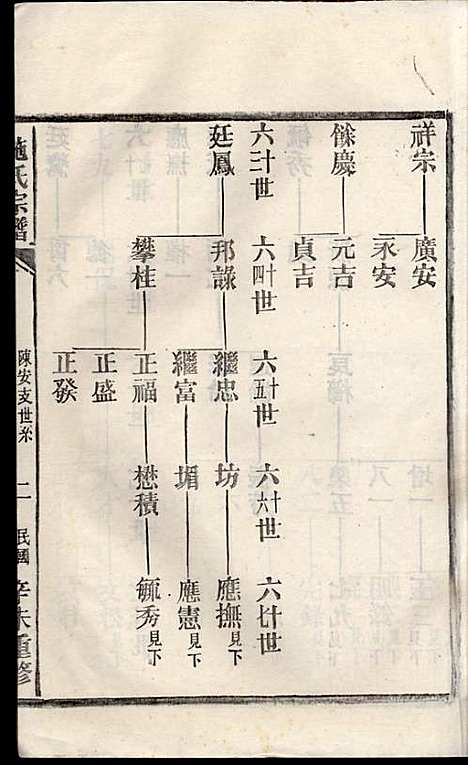 祥宗 廣安
永安
餘慶 元吉
貞吉
六十三世 六十四世 六十五世 六十六世 六十七世
廷鳳 邦諒 繼忠 坊 應撫見下
繼富 堳 應憲見下
攀桂 正福 懋積 毓秀見下
正盛
正發
施氏宗譜 陳安支世系 二 民國辛未重修